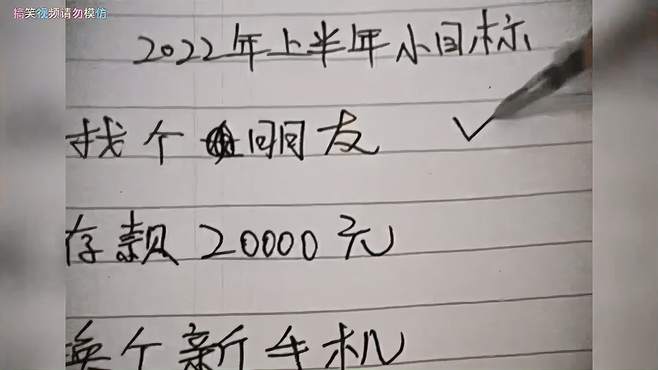 搞笑视频请勿模仿
2022年上半年小目标
找个朋友
存款20000元
换个新手机